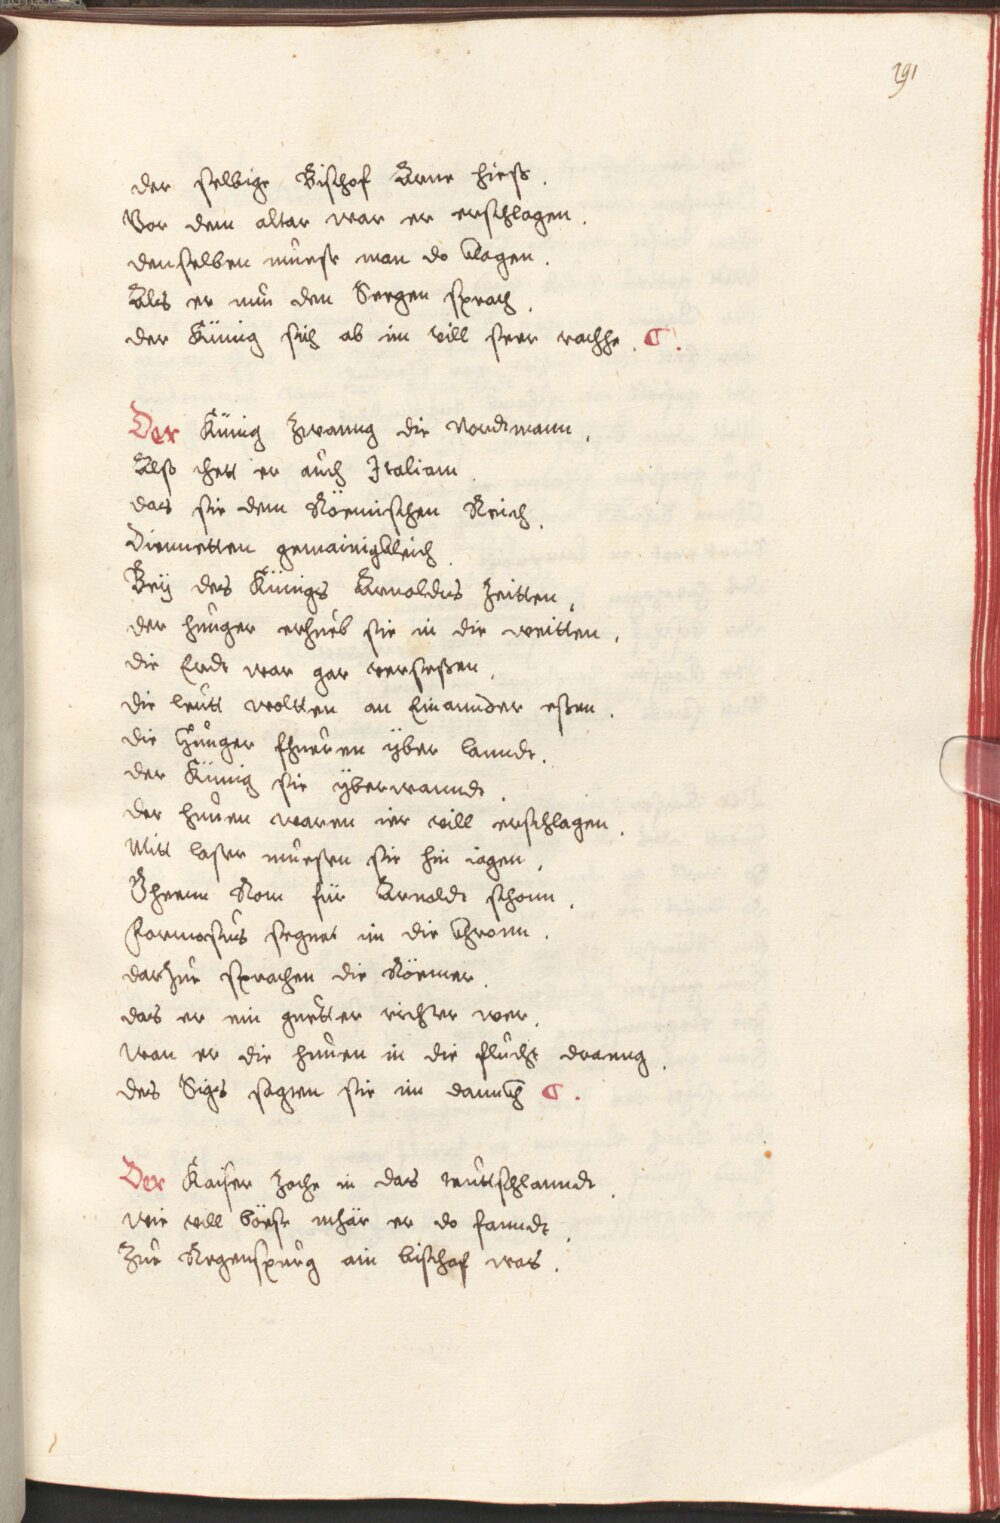 291
der selbige Bischof Arne hieß.
Vor dem altar war er erschlagen.
denselben muest man do klagen.
Als er nun den Seegen sprach.
der Künig sich ab im vill seer rachhe. C.
Der Künig zwanng die Nordtmann.
Alß thett er auch Italiam.
das sie dem Röemischen Reich.
Dienetten gemainigkleich.
Bey des Künigs Arnoldus zeitten.
der hunger erhueb sie in die weitten.
die Erdt war gar versessen.
die leutt woltten an Einannder essen.
die Hunger fhueren yber lanndt.
der Künig sie yberwanndt.
der hunen waren ier vill erschlagen.
Mitt laster muesen sie hin iagen.
Ghenn Rom für Arnoldt schonn.
Formosus segnet im die Chronn.
dar zue sprachen die Röemer.
das er ein guetter richter wer.
wan er die hunen in die flucht dranng.
des Sigs sagten sie im dannckh C.
Der Kaiser zoche in das teuttschlanndt.
wie vill böeße mhär er do fanndt.
Zue Regenspurg ain bischof was.